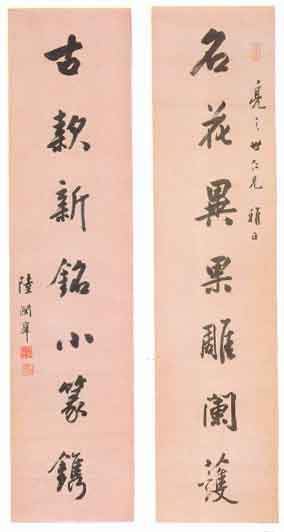 亮之世仁兄雅
名花異果雕闌護
古款新銘小篆鐫
陸潤庠